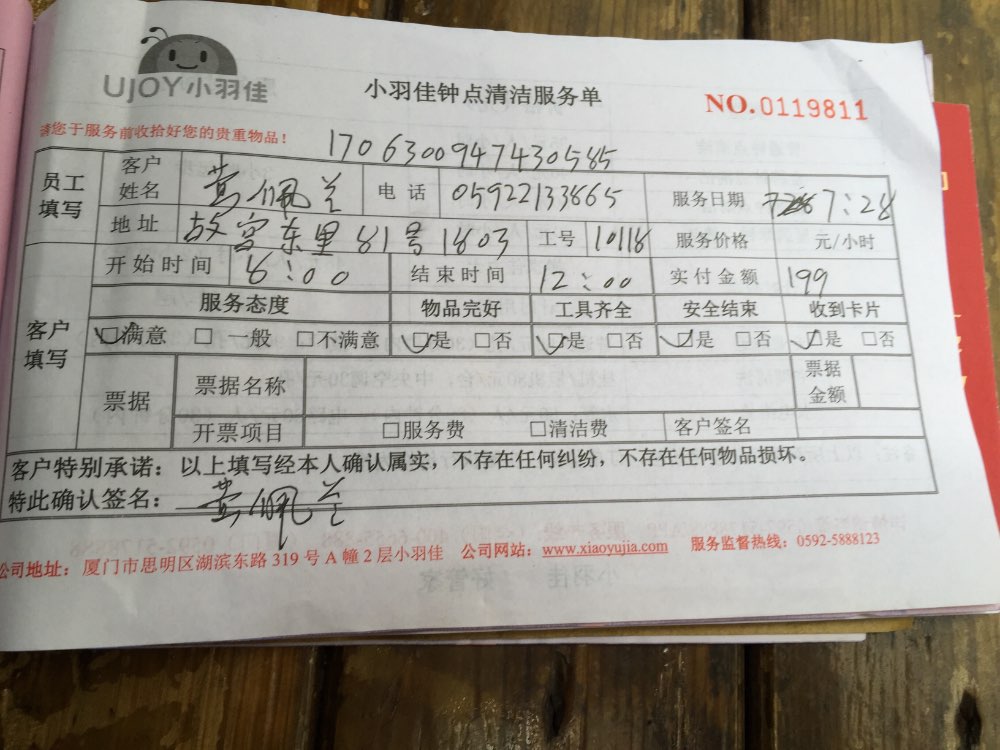 UJOY小羽佳
小羽佳钟点清洁服务单
NO.0119811
请您于服务前收拾好您的贵重物品！
17063009474730585
员工填写 客户姓名 黄佩兰 电话 05922133865 服务日期 7:28
地址 故宫东里81号1803 工号 10118 服务价格 元/小时
开始时间 8:00 结束时间 12:00 实付金额 199
客户填写 服务态度 物品完好 工具齐全 安全结束 收到卡片
□满意 □一般 □不满意 □是 □否 □是 □否 □是 □否 □是 □否
票据 票据名称 票据金额
开票项目 □服务费 □清洁费 客户签名
客户特别承诺：以上填写经本人确认属实，不存在任何纠纷，不存在任何物品损坏。
特此确认签名：黄佩兰
公司地址：厦门市思明区湖滨东路319号A幢2层小羽佳 公司网站：www.xiaoyujia.com 服务监督热线：0592-5888123